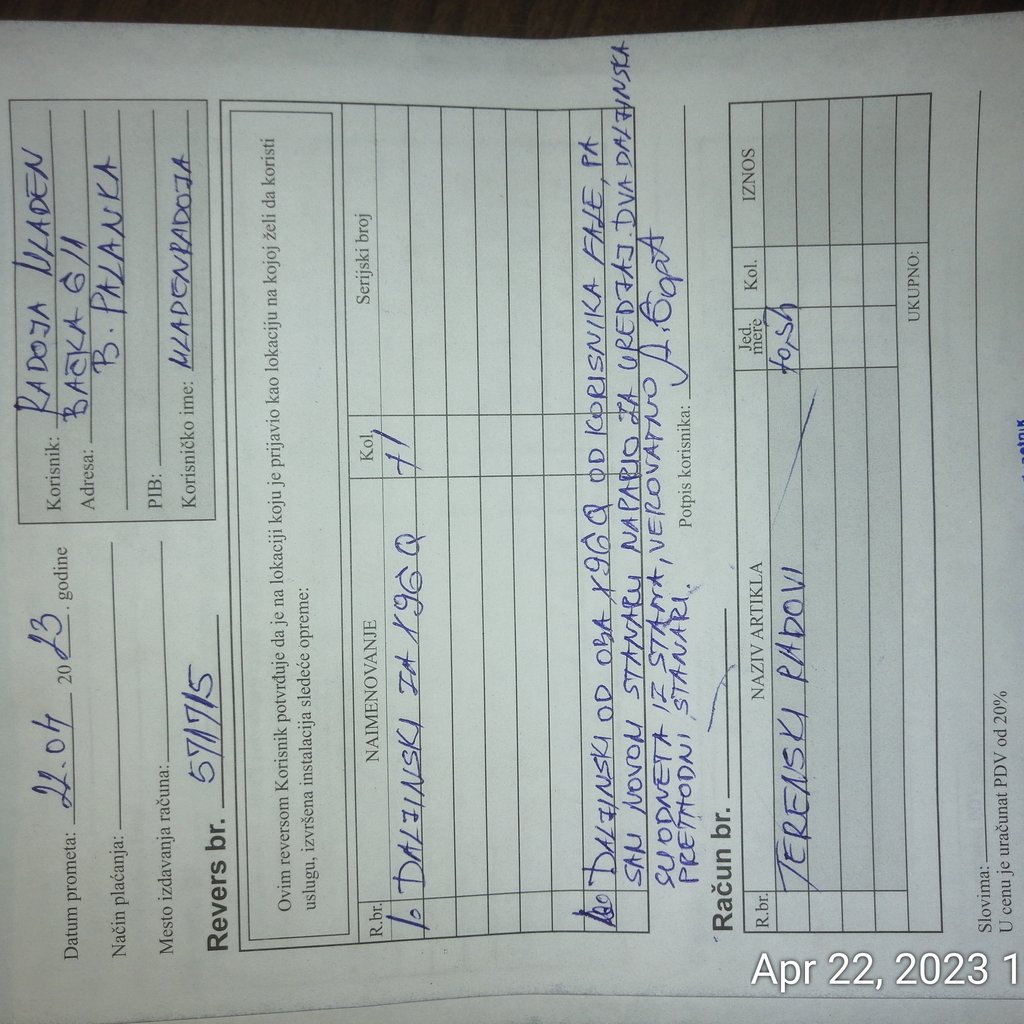 Datum prometa: 22.04 2023. godine
Način plaćanja:
Mesto izdavanja računa:
Korisnik: RADOJA MLADEN
Adresa: BAČKA 61
B. PALANKA
PIB:
Korisničko ime: MLADENRADOJA
Revers br. 57/7/5
Ovim reversom Korisnik potvrđuje da je na lokaciji koju je prijavio kao lokaciju na kojoj želi da koristi
uslugu, izvršena instalacija sledeće opreme:
R.br. NAIMENOVANJE Kol. Serijski broj
1. DALJINSKI ZA X96Q
DALJINSKI OD OBA X96Q OD KORISNIKA FALE, PA
SAM NOVOM STANARU NAPARIO ZA UREDJAJ. DVA DALJINSKA
SU ODNETA IZ STANA, VEROVATNO
PRETHODNI STANARI.
Potpis korisnika:
Račun br.
R.br. NAZIV ARTIKLA Jed. mere Kol. IZNOS
TERENSKI RADOVI
UKUPNO:
Slovima:
U cenu je uračunat PDV od 20%
Apr 22, 2023 1